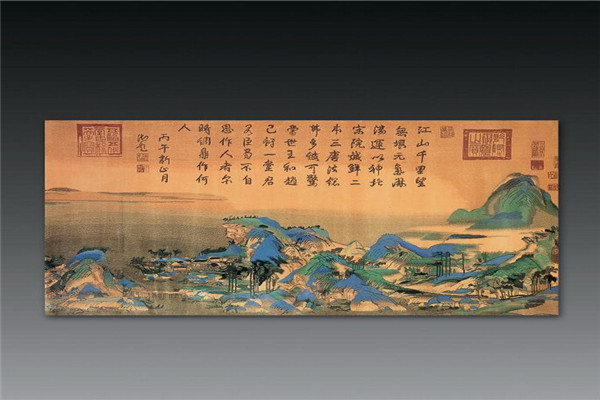 江山千里望
無垠元氣淋
漓運以神北
宋院誠鮮二
本三唐法總
弗多皴可驚
當世王和趙
已訂一堂君
若臣曷不自
思作人者爾
時調鼎作何
人
丙午新正月
御題